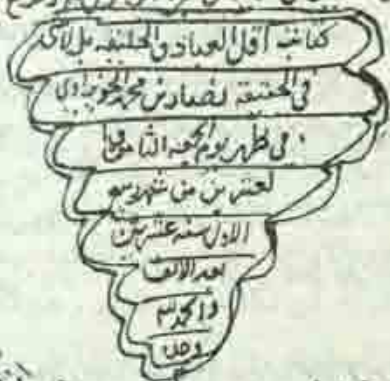 كاتبه اقل العباد في الخليقة بل لا شئ
في الحقيقة نصار بن محمد الحويزاوي
في ظهر يوم الجمعة الثامن و
لعشرين من شهر ربيع
الاول سنة عشرين
بعد الالف
والحمد لله
وحده